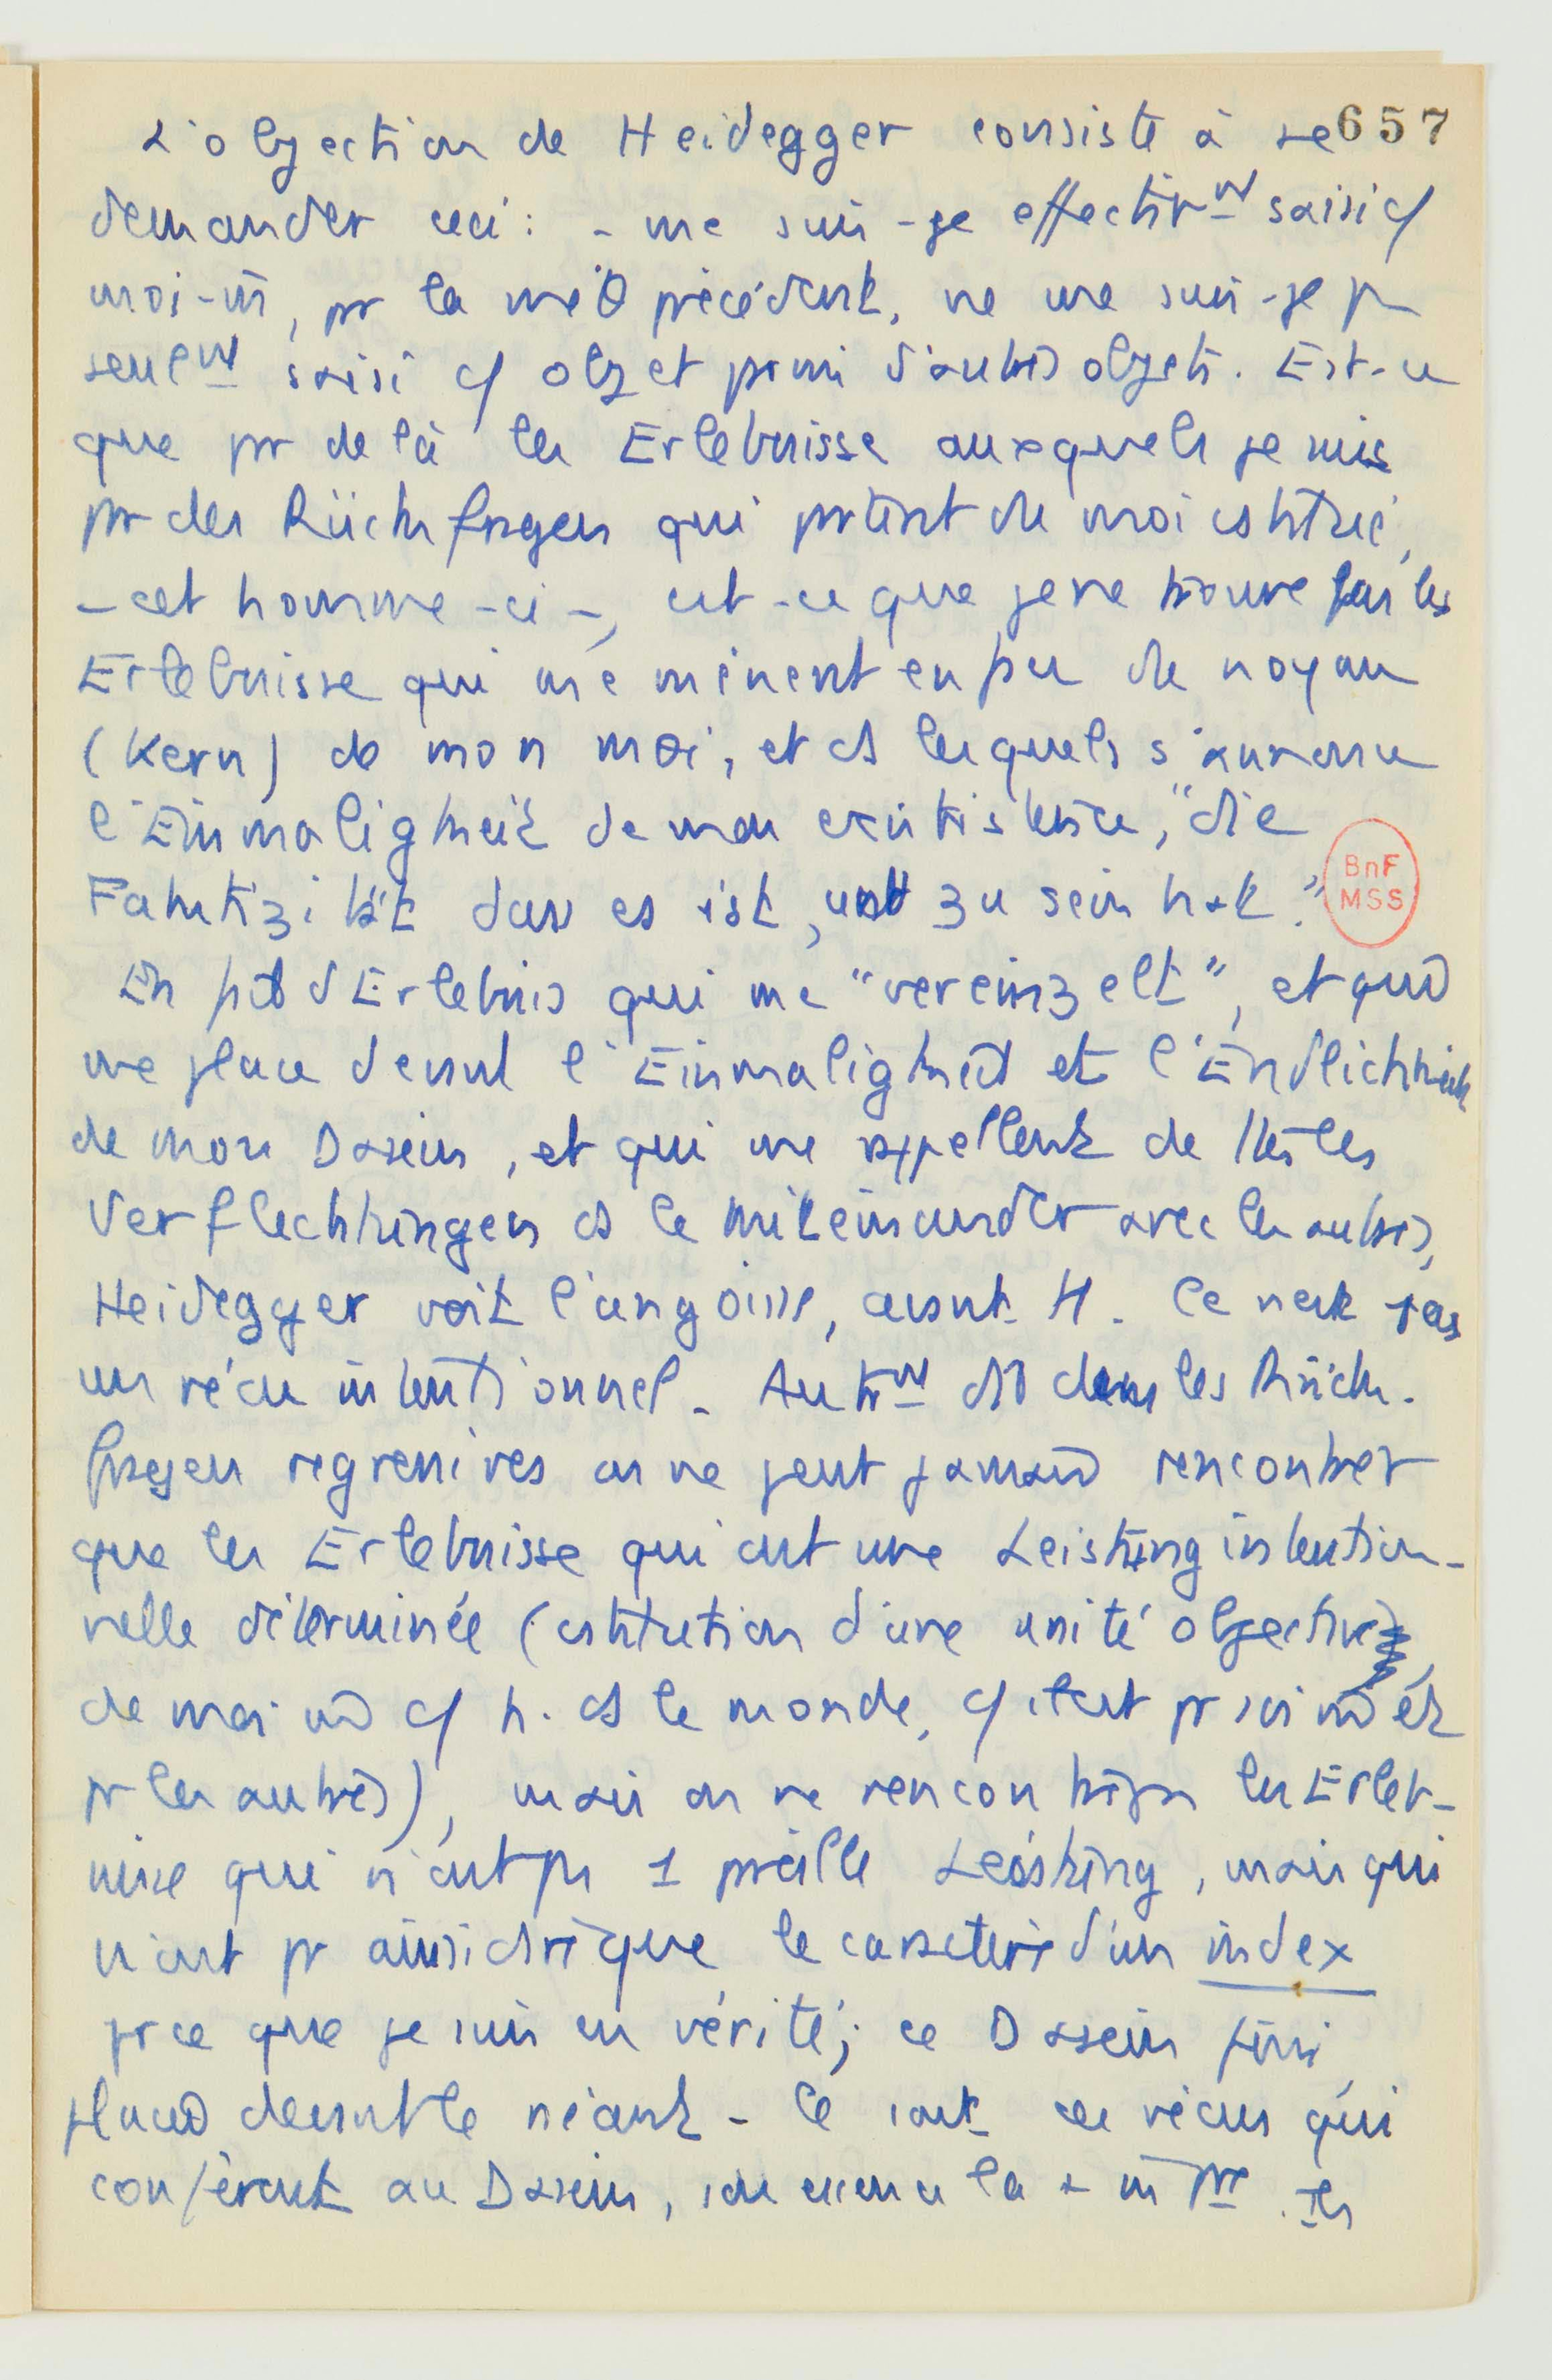 L'objection de Heidegger consiste à se 657
demander ceci : - me suis-je effectivmt saisi c/
moi-m̄, pr la méθ précédente, ne me suis-je p
seulemt saisi c/ objet parmi d'autres objets. Est-ce
que pr delà les Erlebnisse auxquels je suis
pr des Rückfragen qui partent de moi cstitué,
- cet homme-ci -, est-ce que je ne trouve pas les
Erlebnisse qui me mènent en peu de noyau
(Kern) de mon moi, et ds lesquels s'annonce
l'Einmaligkeit de mon existence, "die
Faktizität dass es ist, und zu sein hat."
BnF
MSS
En fait d'Erlebnis qui me "vereinzelt", et qui
me place devant l'Einmaligkeit et l'Endlichkeit
de mon Dasein, et qui me rappellent de ttes les
Verflechtungen ds le miteinander avec les autres,
Heidegger voit l'angoisse, avant H. Ce n'est pas
un vécu intentionnel. Autrmt dit dans les Rück-
fragen regressives on ne peut jamais rencontrer
que les Erlebnisse qui ont une Leistung intention-
nelle déterminée (cstitution d'une unité objective,
de moi c/ h. ds le monde, c/
pr les autres), mais on ne rencontre pas les Erleb-
nisse qui n'ont pas 1 pareille Leistung, mais qui
n'ont pr ainsi dire que le caractère d'un index
pr ce que je suis en vérité; ce Dasein fini
placé devant le néant - Ce sont ces vécus qui
confèrent au Dasein, son essence la + . Ils